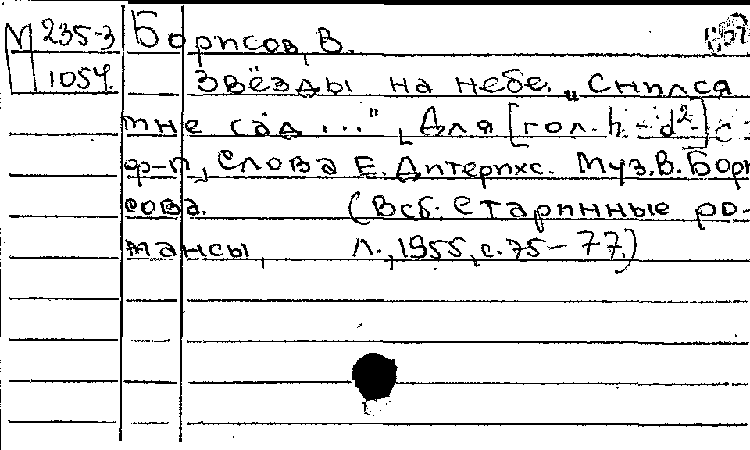 М 235-3 Борисов, В.
1054. Звёзды на небе. „Снился
мне сад ...", [Для [гол. h - d²] с
ф-п., Слова Е. Дитерихс. Муз. В. Бори
сова. (В сб: Старинные ро-
мансы, Л., 1955, с. 75-77.)